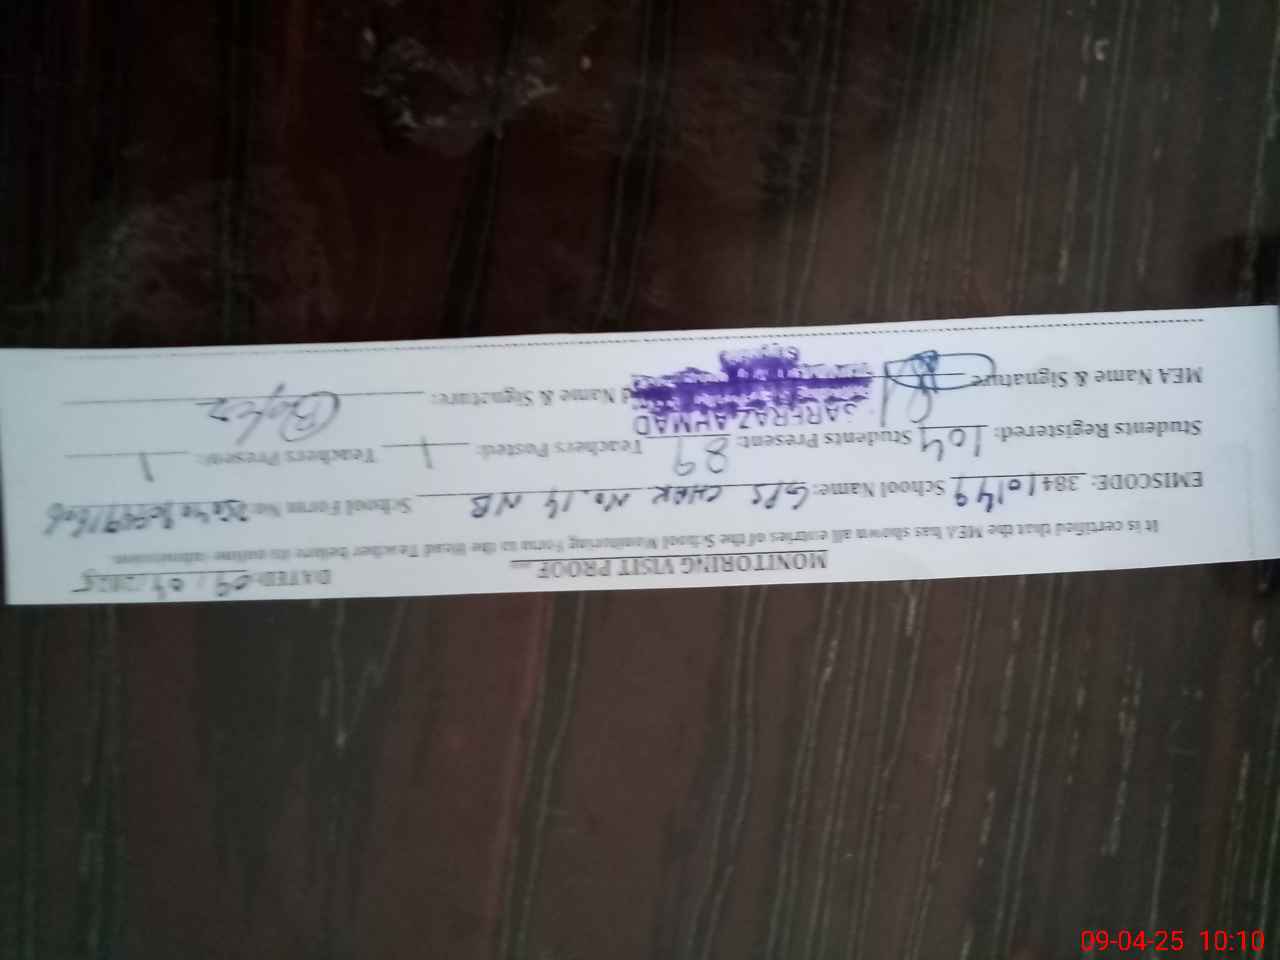 MONITORING VISIT PROOF DATED: 09/04/2025
It is certified that the MEA has shown all entries of the School Monitoring Form to the Head Teacher before its online submission.
EMISCODE: 38410149 School Name: GPS CHAK No. 14 NB School Form No:
Students Registered: 104 Students Present: 89 Teachers Posted: 1 Teachers Present: 1
MEA Name & Signature SARFRAZ AHMAD Name & Signature:
09-04-25 10:10